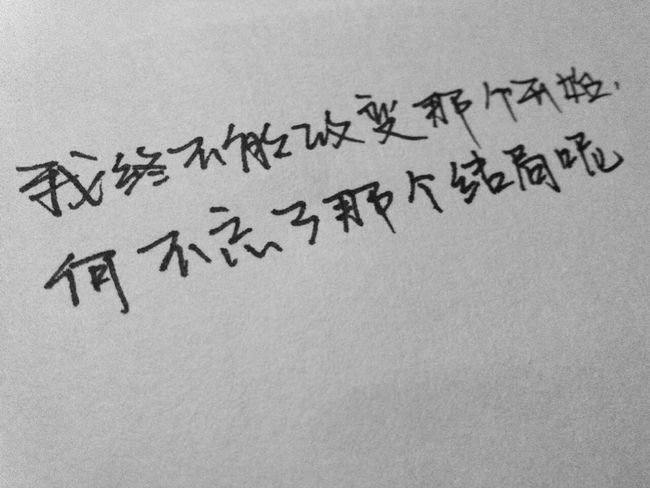 我终不能改变那个开始，
何不忘了那个结局呢